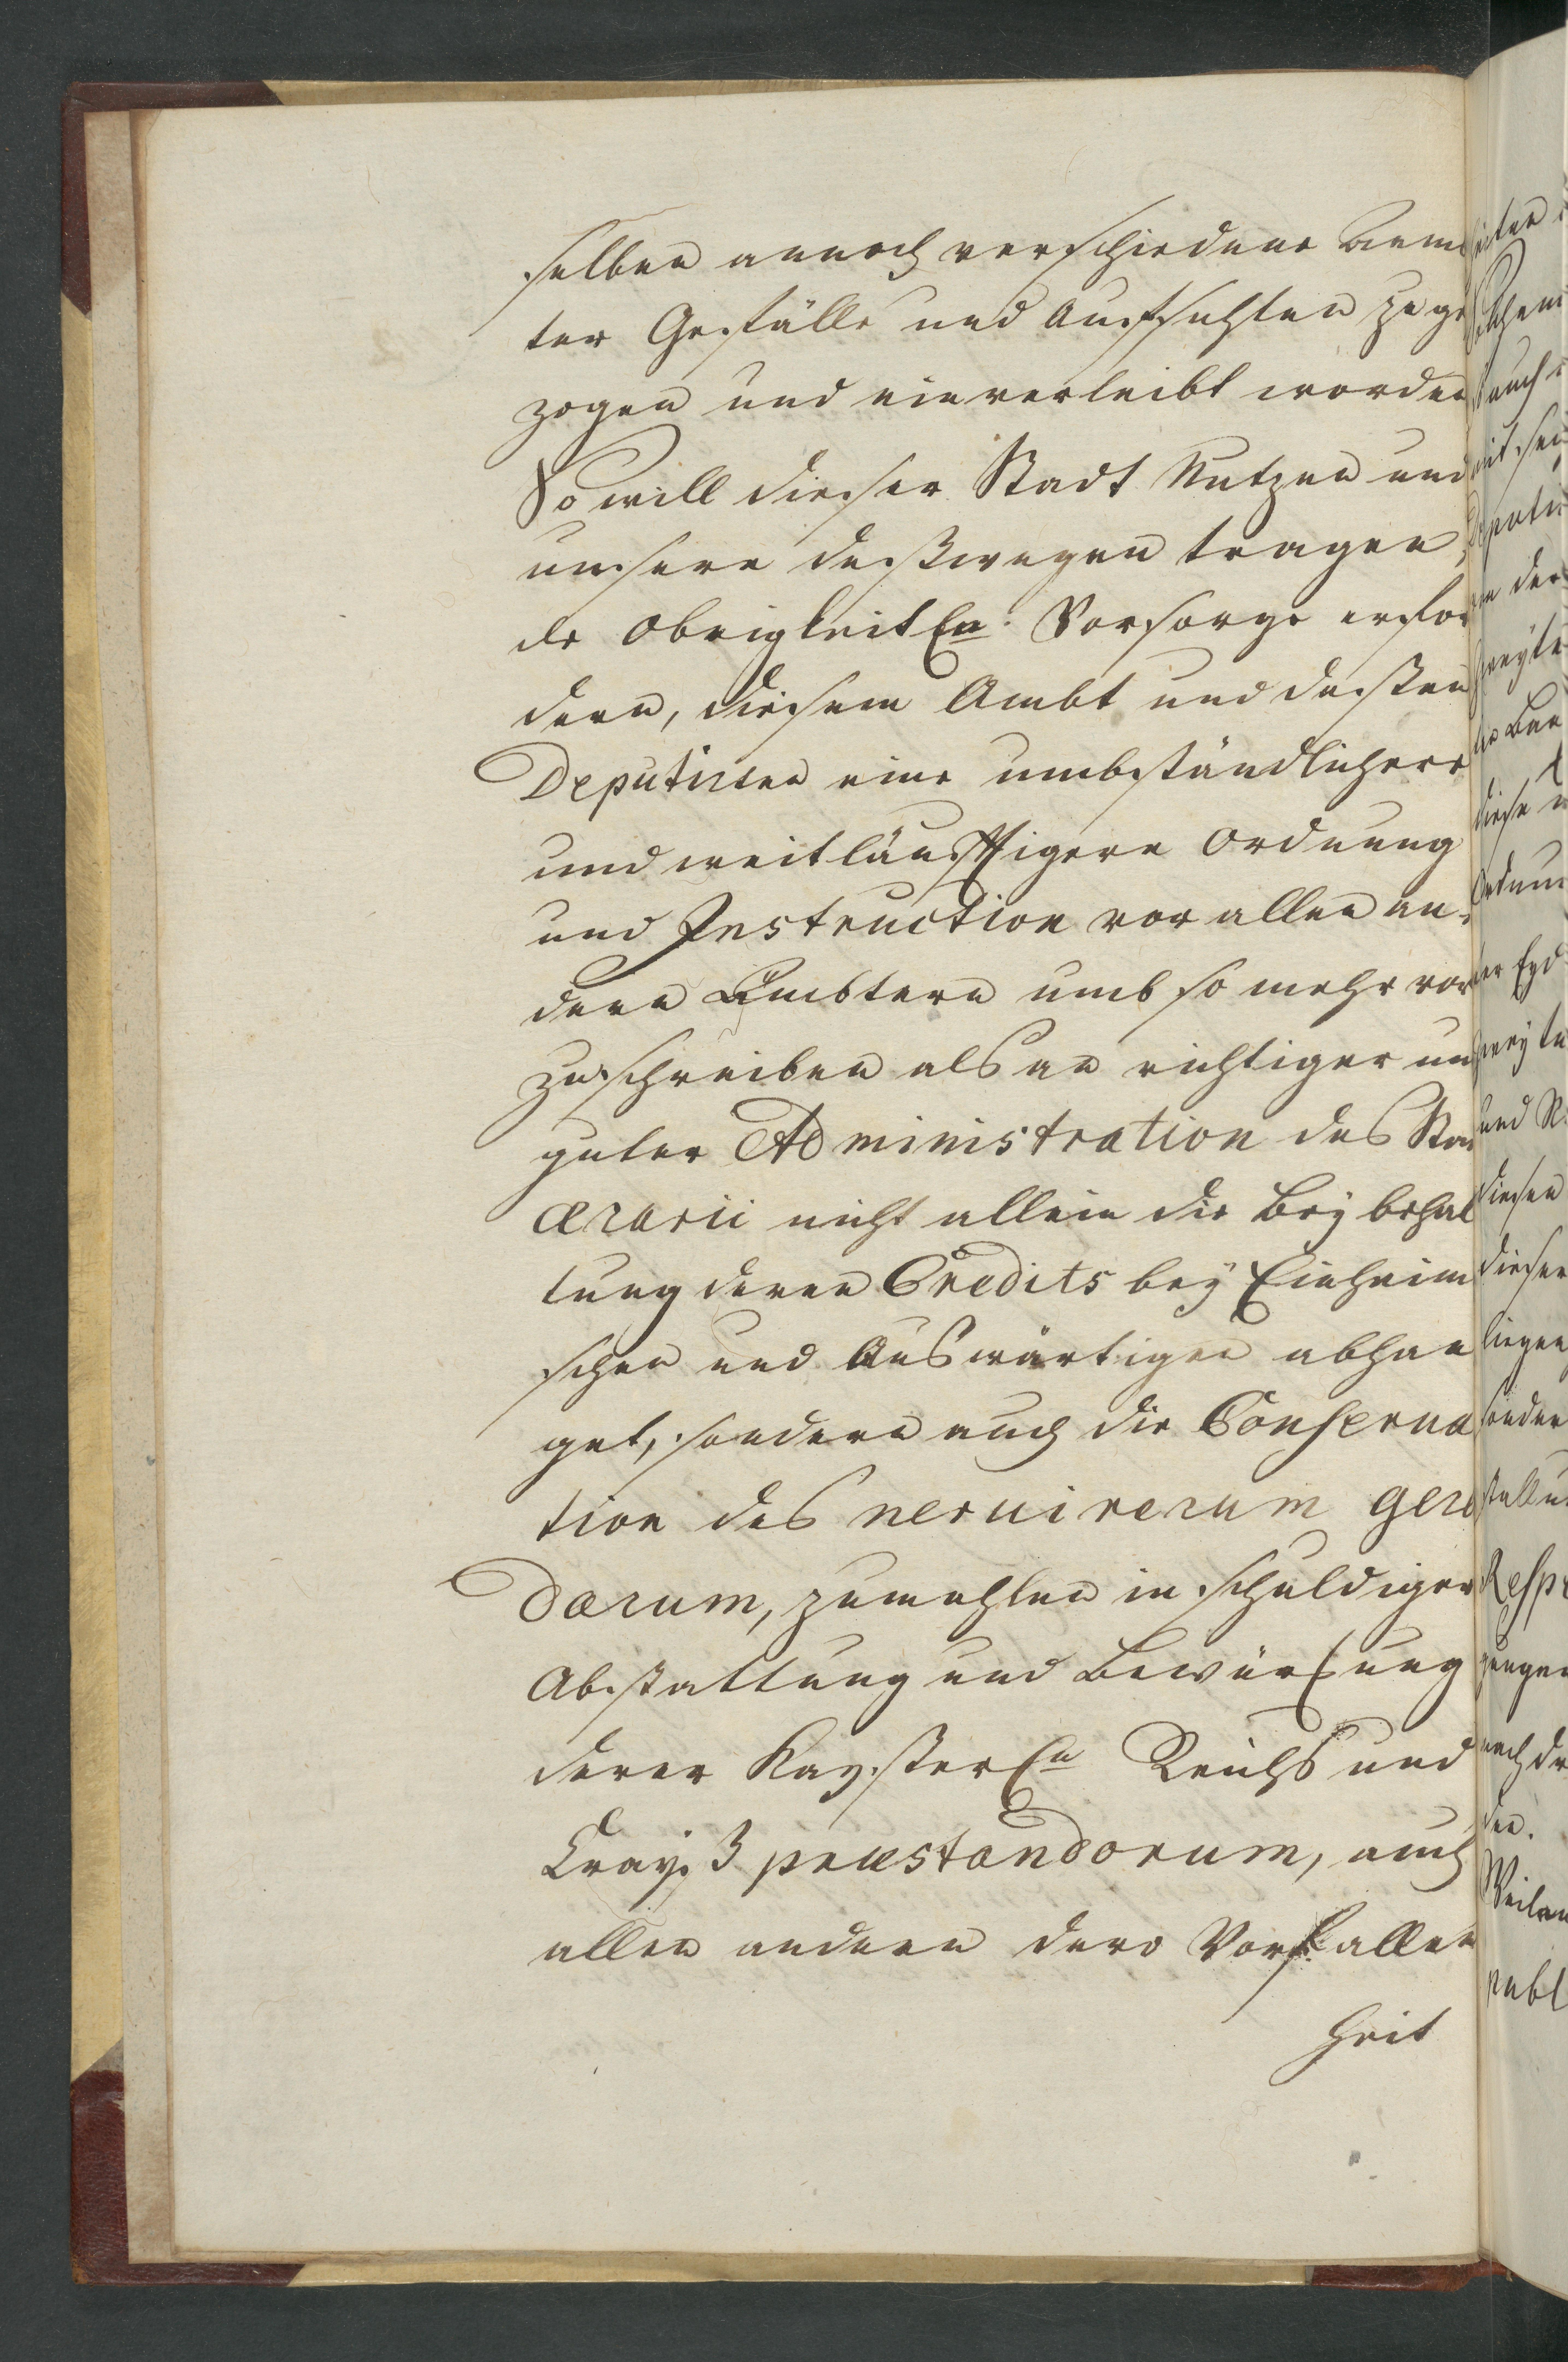 selben annoch verschiedene Aem
ter Gefälle und Aufsichten zu ge
zogen und einverleibt worden
So will dieser Stadt Nutzen und
unsere deßwegen tragen
de Obrigkeitln: Vorsorge erfor
dern, diesem Ambt und deßen
Deputirten eine umbständlichere
und weitläufftigere Ordnung
und Instruction vor allen an-
dern Aembtern umb so mehr vor
zuschreiben als an richtiger un
guter Administration des Sta
ærarii nicht allein die Beÿbehal
tung deren Credits beÿ Einheim
schen und Auswärtigen abhan
get, sondern auch die Conserva
tion des nervi rerum gere
darum, zumahlen in schuldiger
Abstattung und Bewürkung
derer Kayßerln Reichs und
Crayß præstandorum, auch
allen andern dero Vorfallen
heit